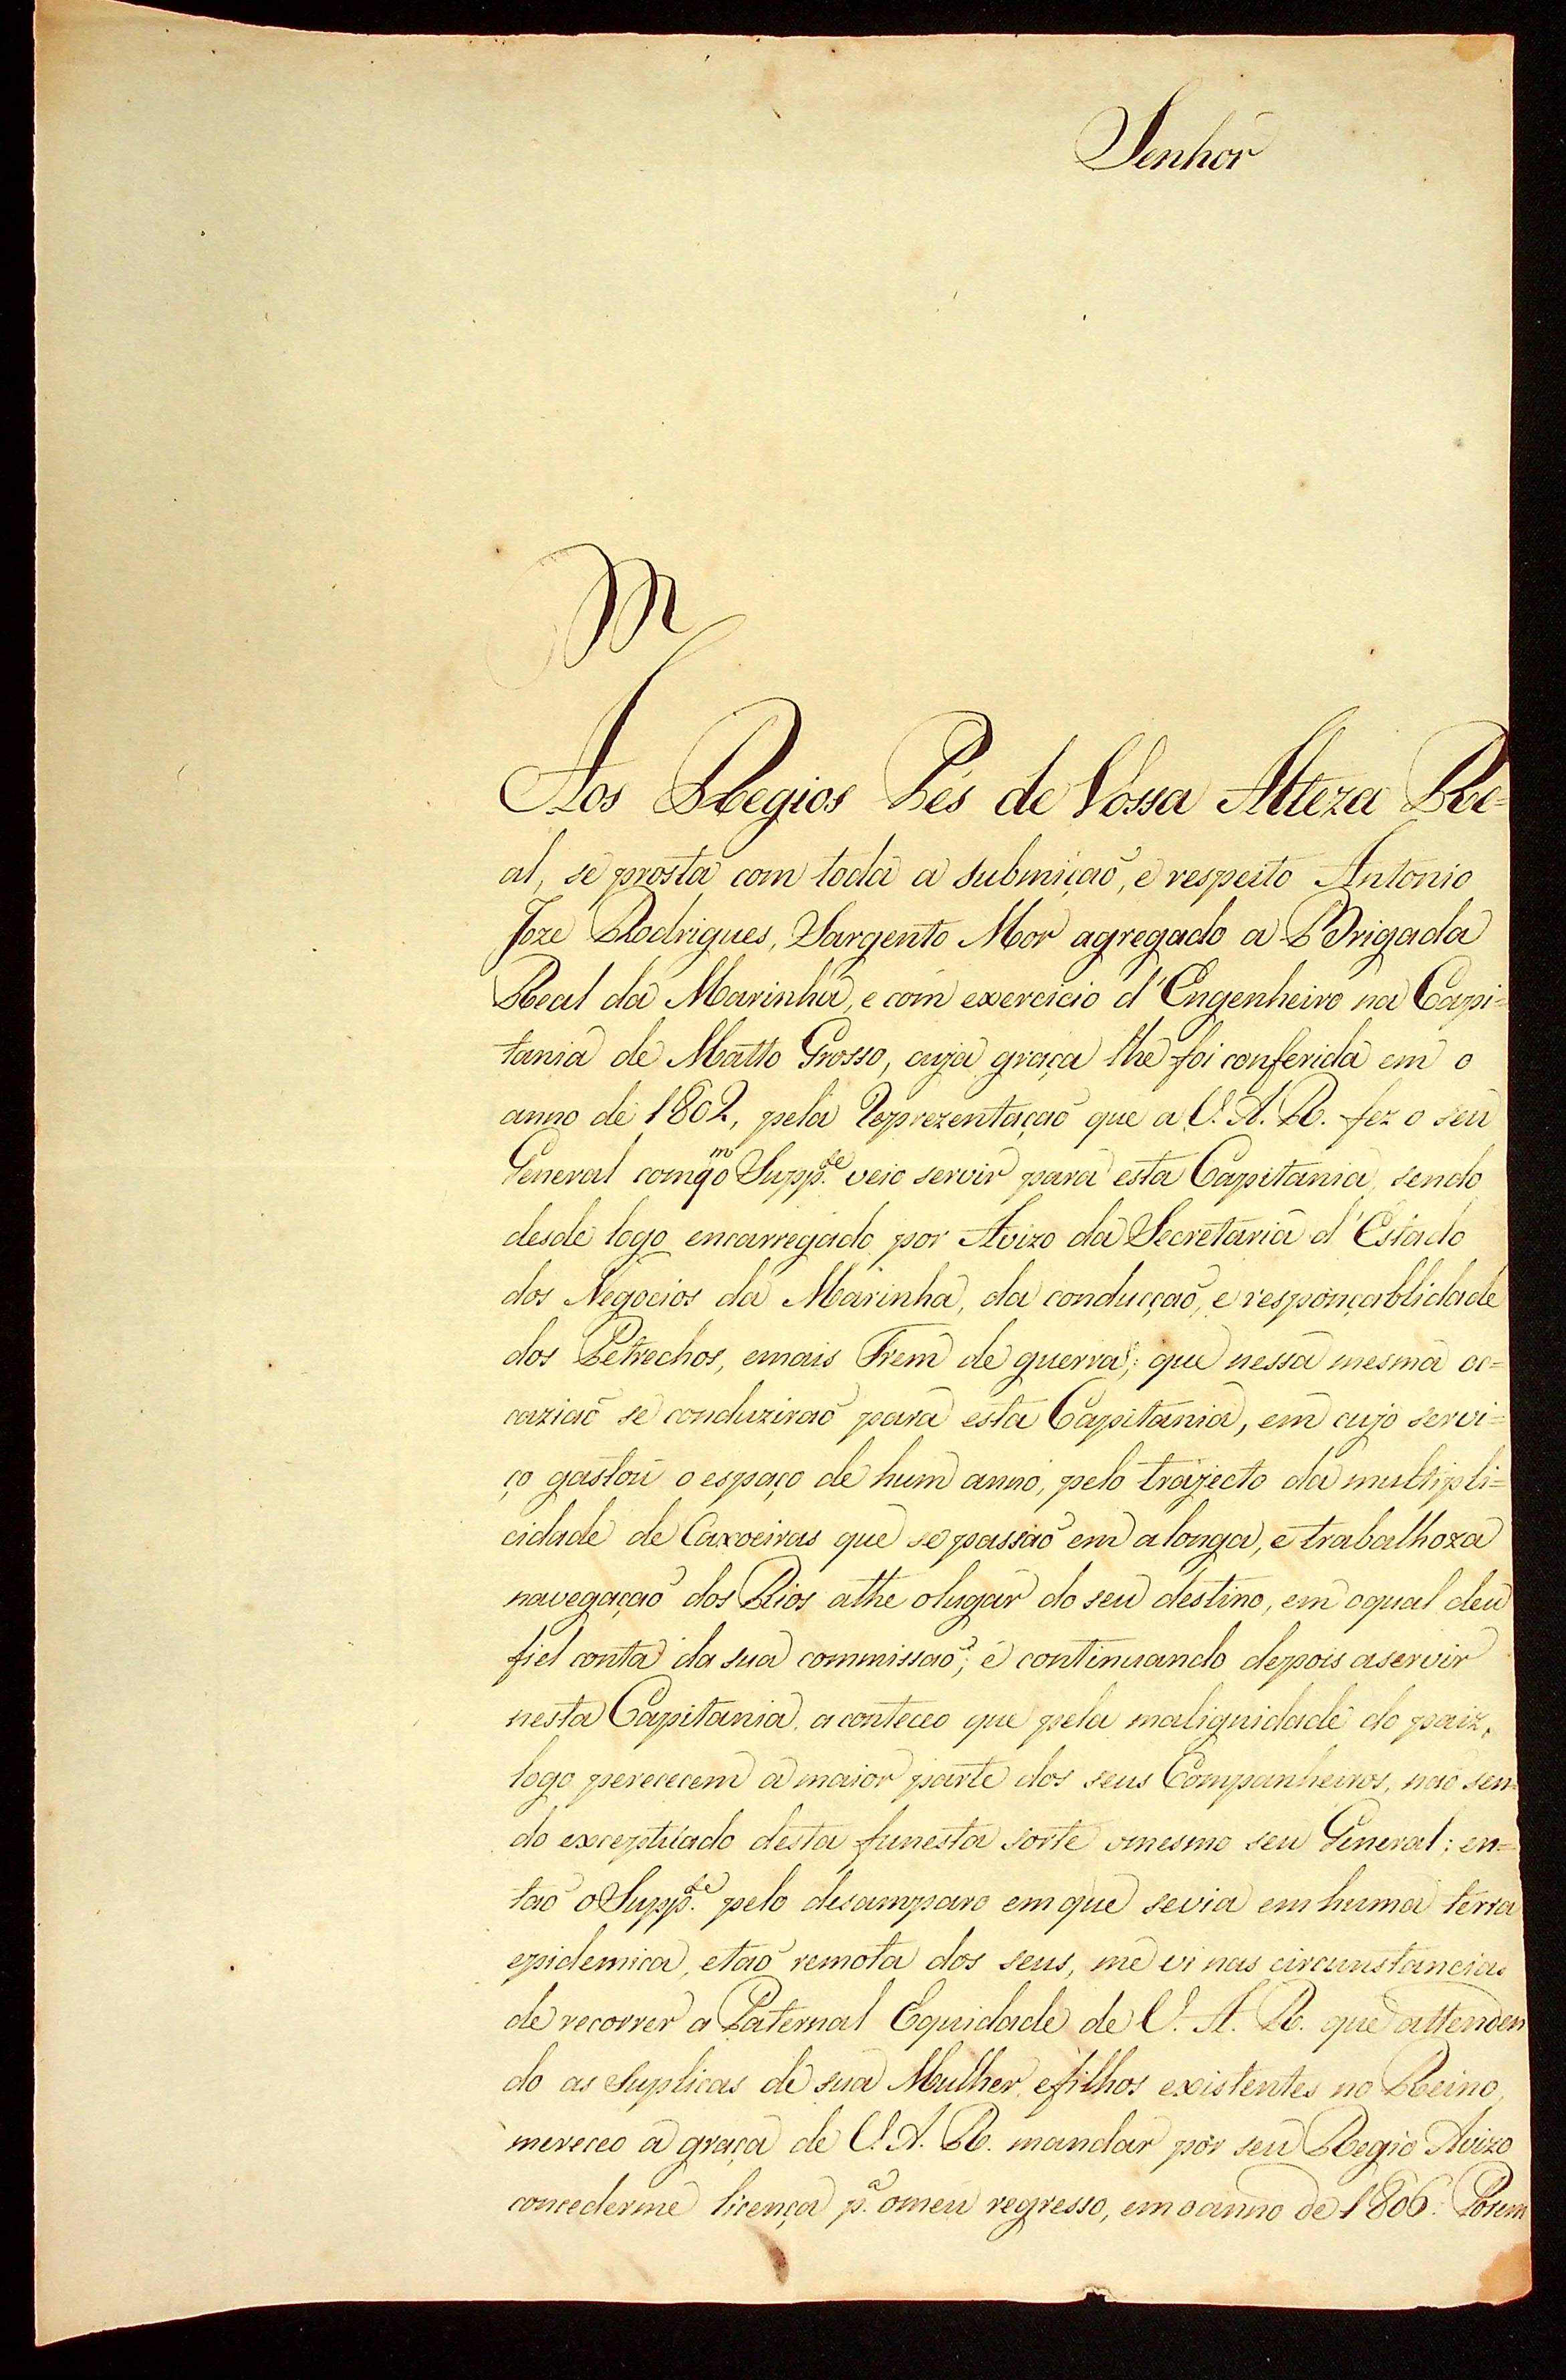 Senhor
M
Aos Regios Pés de Vossa Alteza Re=
al, se prosta com toda a submiçaõ, e respeito Antonio
Joze Rodrigues, Sargento Mor agregado a Brigada
Real da Marinha, e com exercicio d'Engenheiro na Capi=
tania de Matto Grosso, cuja graça lhe foi conferida em o
anno de 1802, pela Reprezentaçaõ que a V. A. R. fez o seu
General com q^m o Supp.^te veio servir para esta Capitania, sendo
desde logo encarregado por Avizo da Secretaria d'Estado
dos Negocios da Marinha, da conducçaõ, e responçablidade
dos Petrechos, emais Trem de guerra; que nessa mesma oc=
caziaõ se conduziraõ para esta Capitania, em cujo servi=
ço gastou o espaço de hum anno, pelo trajecto da multipli=
cidade de Caxoeiras que se passaõ em a longa, e trabalhoza
navegaçaõ dos Rios athe olugar do seu destino, em oqual deu
fiel conta da sua commissaõ; e continuando depois aservir
nesta Capitania, aconteceo que pela malignidade do paiz,
logo perececem a maior parte dos seus Companheiros, naõ sen=
do exceptuado desta funesta sorte omesmo seu General; en=
taõ o Supp.^te pelo desamparo em que sevia em huma terra
epidemica, etaõ remota dos seus, me vi nas circunstancias
de recorrer a Paternal Equidade de V. A. R. que attenden
do as suplicas de sua Mulher, efilhos existentes no Reino,
mereceo a graça de V. A. R. mandar por seu Regio Avizo
concederme licença p.^a omeu regresso, em o anno de 1806: Porem